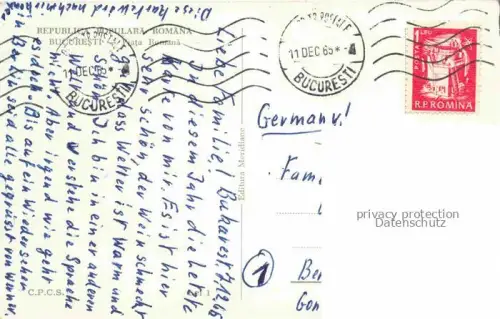 REPUBLICA POPULARĂ ROMÂNĂ
BUCUREȘTI - Piața Romană
11 DEC 65 * 4
BUCURESTI
11 DEC 65 * 4
BUCURESTI
POSTA
R.P.ROMINA
Germany!
Fam
1
Be
Gon
privacy protection
Datenschutz
Editura Meridiane
C.P.C.S.
Liebe Familie! Bukarest, 7/12 65
In diesem Jahr die Letzte
Karte von mir. Es ist hier
sehr schön, der Wein schmeckt
das Wetter ist warm und
Ich bin in einer anderen
Welt und verstehe die Sprache
nicht. Aber irgend wie geht
es doch. Bis auf ein Wiedersehen
in Berlin seid alle gegrüsst von
Diese Karte wird